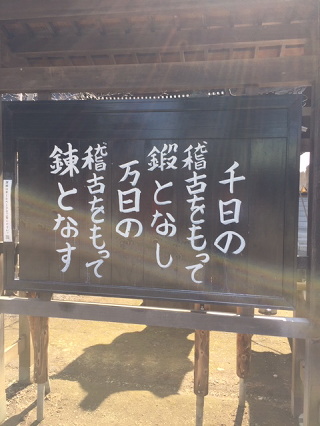 千日の
稽古をもって
鍛となし
万日の
稽古をもって
錬となす